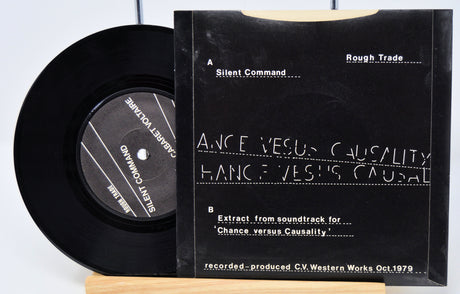 CABARET VOLTAIRE
SILENT COMMAND
ROUGH TRADE
A
Silent Command
Rough Trade
ANCE VESUS CAUSALITY
HANCE VESUS CAUSAL
B
Extract from soundtrack for
'Chance versus Causality'
recorded-produced C.V. Western Works Oct.1979